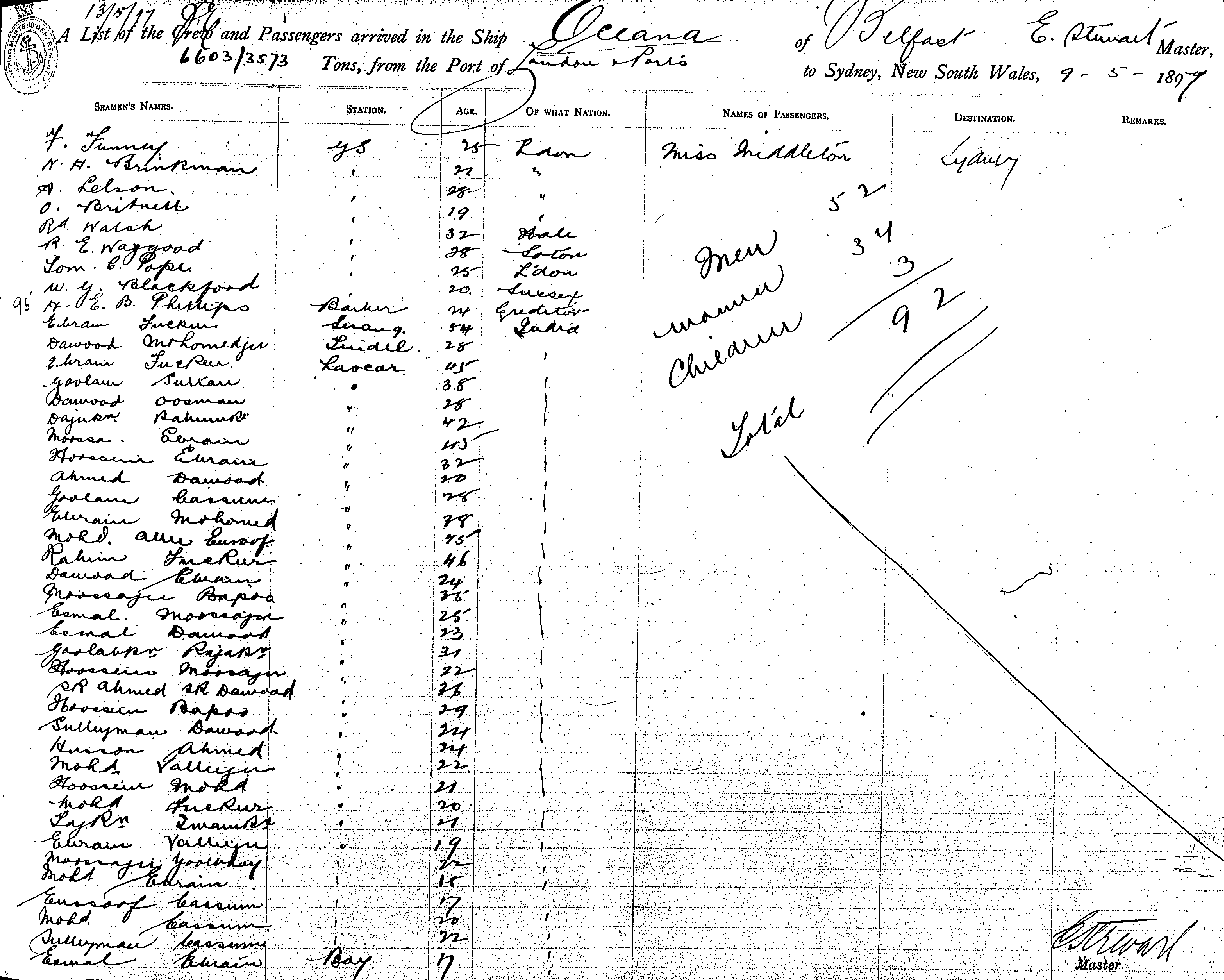 13/5/17
A List of the Crew and Passengers arrived in the Ship Oceana of Belfast E. Stewart Master,
6603/3573 Tons, from the Port of London & Ports to Sydney, New South Wales, 9 - 5 - 1897
SEAMEN'S NAMES. STATION. AGE. OF WHAT NATION. NAMES OF PASSENGERS. DESTINATION. REMARKS.
F. GS 25 Ldon Miss Middleton Sydney
N. H. Brinkman " 22 "
A. Lelson. " 28 "
O. Britnell " 19
Rd. Walsh " 32
R. E. Waygood " 28 Soton
Tom. C. Pope " 25 L'don
W. G. Blackford 20 Sussex
95 A. E. B. Phillips Barber 24 Crediton
Ebram Fucker Serang. 54 India
Dawood Mohomedjee Tindel. 28
Ebrain Fuckeer Lascar 45
Goolam Sultan " 38
Dawood Oosman " 28
42
Moossa. Ebrain " 45
Hoossein Ebrain " 32
Ahmed Dawood " 20
Goolam Cassum " 28
Ebrain Mohomed " 28
Mohd. Eusoof " 45
Rahim Fuckeer " 46
Dawood Ebrain " 24
Moossajee Bapoo "
Esmal. Moossajee " 25
Esmal Dawood " 23
31
Hoossein Moosajee " 22
SK Ahmed SK Dawood " 26
Hoossein Bapoo " 29
Sulleyman Dawood " 24
Husson Ahmed " 24
Mohd Valleejee " 22
Hoossein Mohd " 21
Mohd Fuckeer " 20
21
Ebrain Valleejee " 19
Moossajee 22
Mohd Ebrain 18
Eussoof Cassum 17
Mohd Cassum 20
Sulleyman Cassum 22
Esmal Ebrain Boy 17
Men 52
Women 34
Children 3
Total 92
E Stewart
Master